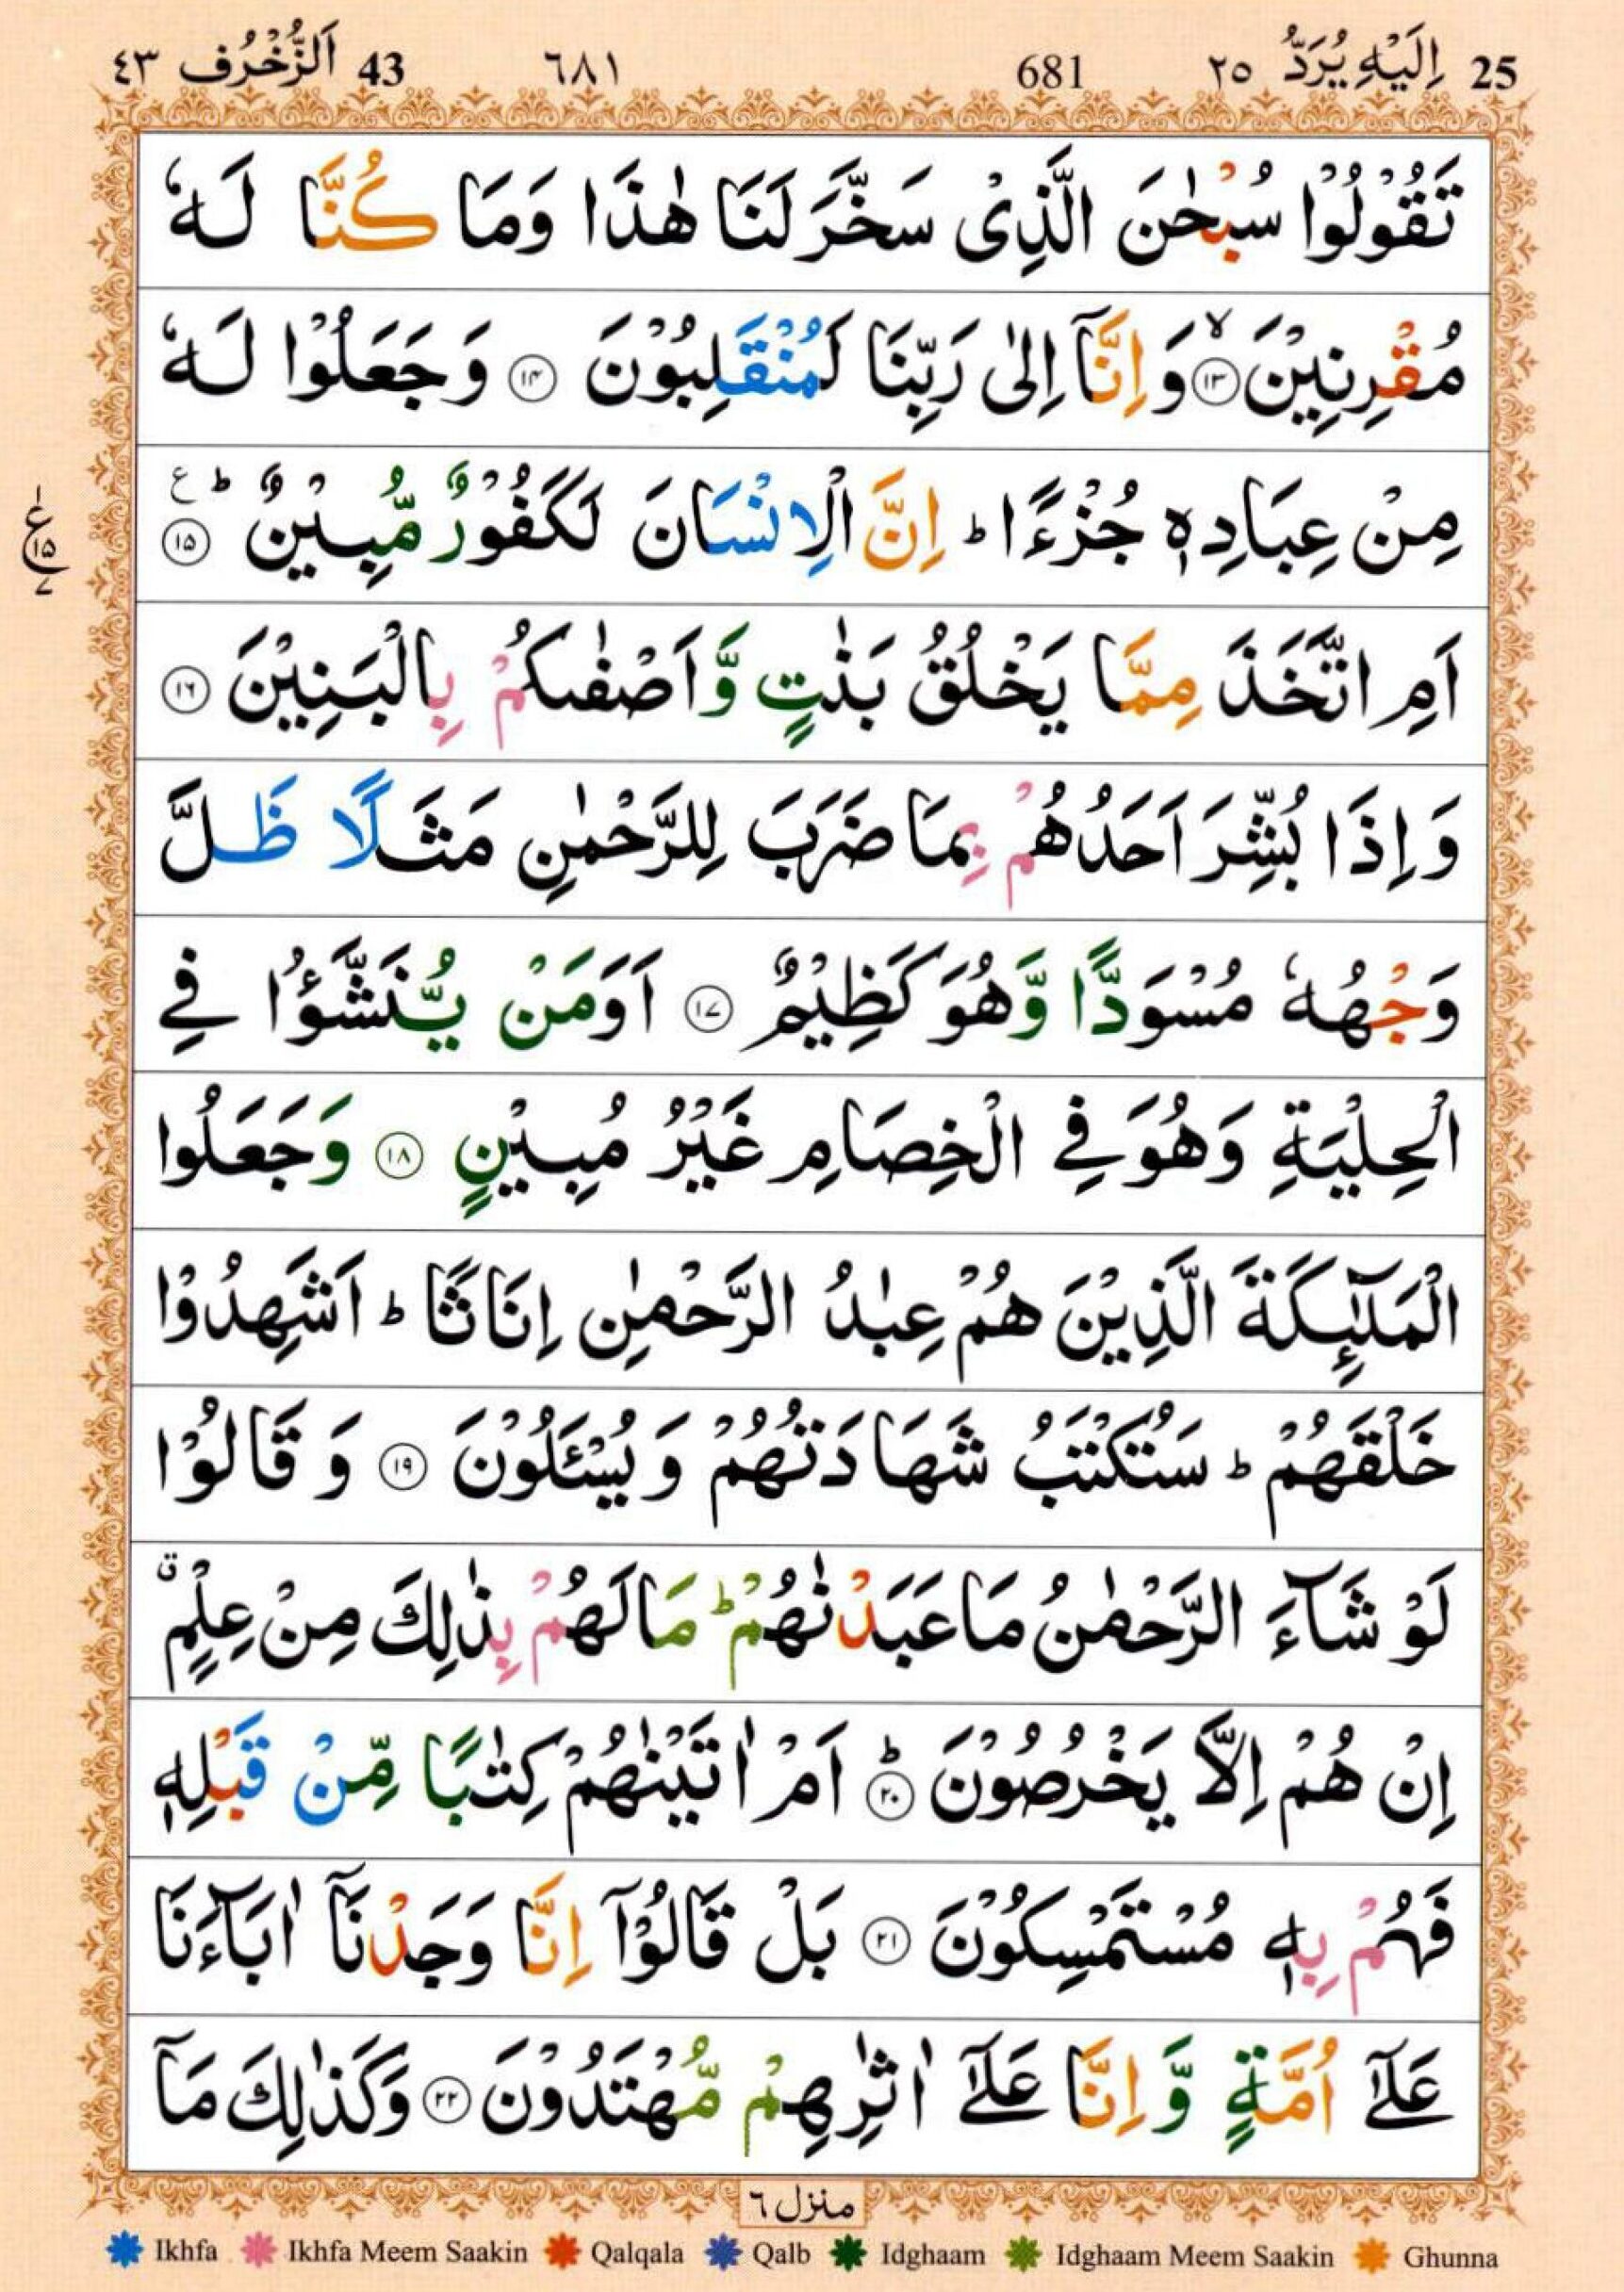 25 اِلَيْهِ يُرَدُّ ٢٥ 681 ٦٨١ 43 اَلزُّخْرُف ٤٣
تَقُوْلُوْا سُبْحٰنَ الَّذِىْ سَخَّرَ لَنَا هٰذَا وَمَا كُنَّا لَهٗ
مُقْرِنِيْنَ ۙ ١٣ وَ اِنَّاۤ اِلٰى رَبِّنَا لَمُنْقَلِبُوْنَ ١٤ وَجَعَلُوْا لَهٗ
مِنْ عِبَادِهٖ جُزْءًا ؕ اِنَّ الْاِنْسَانَ لَكَفُوْرٌ مُّبِيْنٌ ؕ ع ١٥
ع ١٥ ٧
اَمِ اتَّخَذَ مِمَّا يَخْلُقُ بَنٰتٍ وَّ اَصْفٰىكُمْ بِالْبَنِيْنَ ١٦
وَ اِذَا بُشِّرَ اَحَدُهُمْ بِمَا ضَرَبَ لِلرَّحْمٰنِ مَثَلًا ظَلَّ
وَجْهُهٗ مُسْوَدًّا وَّهُوَ كَظِيْمٌ ١٧ اَوَمَنْ يُّنَشَّؤُا فِى
الْحِلْيَةِ وَهُوَ فِى الْخِصَامِ غَيْرُ مُبِيْنٍ ١٨ وَجَعَلُوا
الْمَلٰٓئِكَةَ الَّذِيْنَ هُمْ عِبٰدُ الرَّحْمٰنِ اِنَاثًا ؕ اَشَهِدُوْا
خَلْقَهُمْ ؕ سَتُكْتَبُ شَهَادَتُهُمْ وَ يُسْئَلُوْنَ ١٩ وَ قَالُوْا
لَوْ شَآءَ الرَّحْمٰنُ مَا عَبَدْنٰهُمْ ؕ مَا لَهُمْ بِذٰلِكَ مِنْ عِلْمٍ ۗ
اِنْ هُمْ اِلَّا يَخْرُصُوْنَ ؕ ٢٠ اَمْ اٰتَيْنٰهُمْ كِتٰبًا مِّنْ قَبْلِهٖ
فَهُمْ بِهٖ مُسْتَمْسِكُوْنَ ٢١ بَلْ قَالُوْۤا اِنَّا وَجَدْنَاۤ اٰبَآءَنَا
عَلٰٓى اُمَّةٍ وَّ اِنَّا عَلٰٓى اٰثٰرِهِمْ مُّهْتَدُوْنَ ٢٢ وَكَذٰلِكَ مَاۤ
منزل ٦
Ikhfa Ikhfa Meem Saakin Qalqala Qalb Idghaam Idghaam Meem Saakin Ghunna